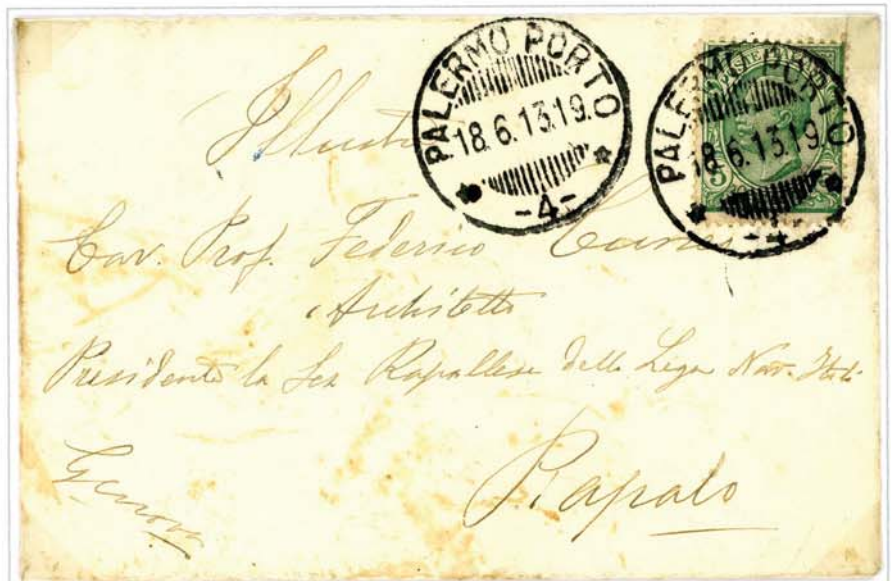 PALERMO PORTO
18.6.13.19
-4-
PALERMO PORTO
18.6.13.19
-4-
5
Cav. Prof. Federico
Architetto
Presidente la Sez Rapallese della Lega Nav. Itali
Genova
Rapalo